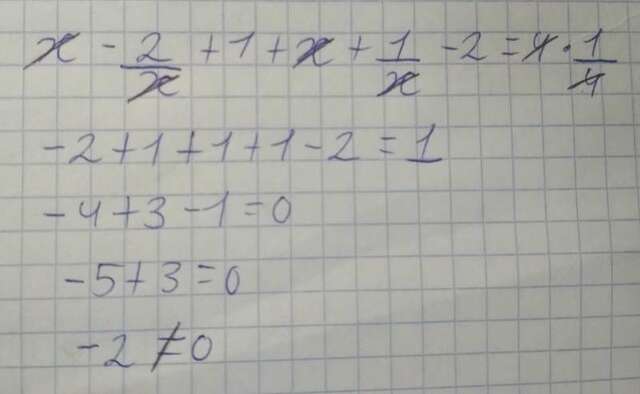 x - 2/x + 1 + x + 1/x - 2 = 4 · 1/4
-2 + 1 + 1 + 1 - 2 = 1
-4 + 3 - 1 = 0
-5 + 3 = 0
-2 ≠ 0